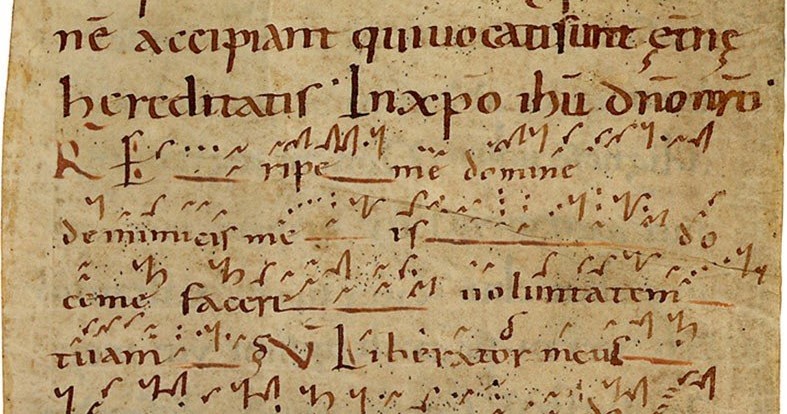 nē accipiant qui uocati sunt ęt̄nę
hereditatis · In xp̄o ihū dn̄o nr̄o ·
R E ripe mē dominē
de inimicis me is do
ce me facere uoluntatem
tuam V Liberator meus